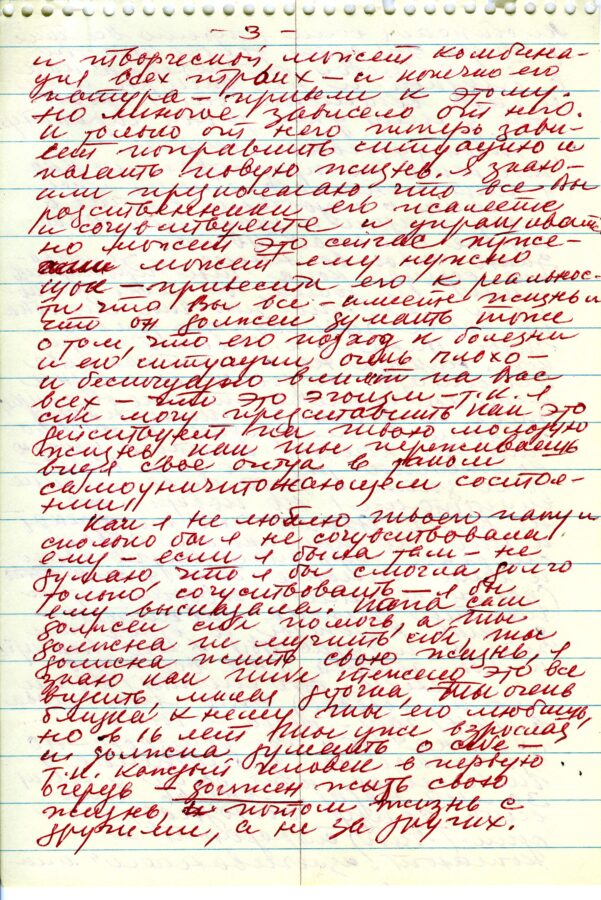 - 3 -
и творческой может комбина-
ция всех троих - и конечно его
натура - привели к этому.
но многое зависело от него.
и только от него теперь зави-
сит поправить ситуацию и
начать новую жизнь. Я знаю-
или предполагаю что все вы
родственники его жалеете
и сочувствуете и упрашиваете
но может это сейчас хуже-
может ему нужно
шок - привести его к реальнос-
ти что Вы все - имеете жизнь и
что он должен думать тоже
о том, что его подход к болезни
и его ситуации очень плохо-
и бесполезно влияет на Вас
всех - что это эгоизм - т.к. я
себе могу представить как это
действует на твою молодую
жизнь как ты переживаешь
видя свое отца в таком
самоуничтожающем состоя-
нии!
Как я не люблю твоего папу и
сколько бы я не сочувствовала
ему - если я была там - не
думаю, что я бы смогла долго
только сочувствовать - я бы
ему высказала. Папа сам
должен себе помочь, а ты
должна не мучить себя, ты
должна жить свою жизнь, я
знаю как тебе тяжело это все
видеть, милая дочка, ты очень
близка к нему, ты его любишь,
но в 16 лет ты уже взрослая
и должна думать о себе -
т.к. каждый человек в первую
очередь - должен жить свою
жизнь, потом жизнь с
другими, а не за других.